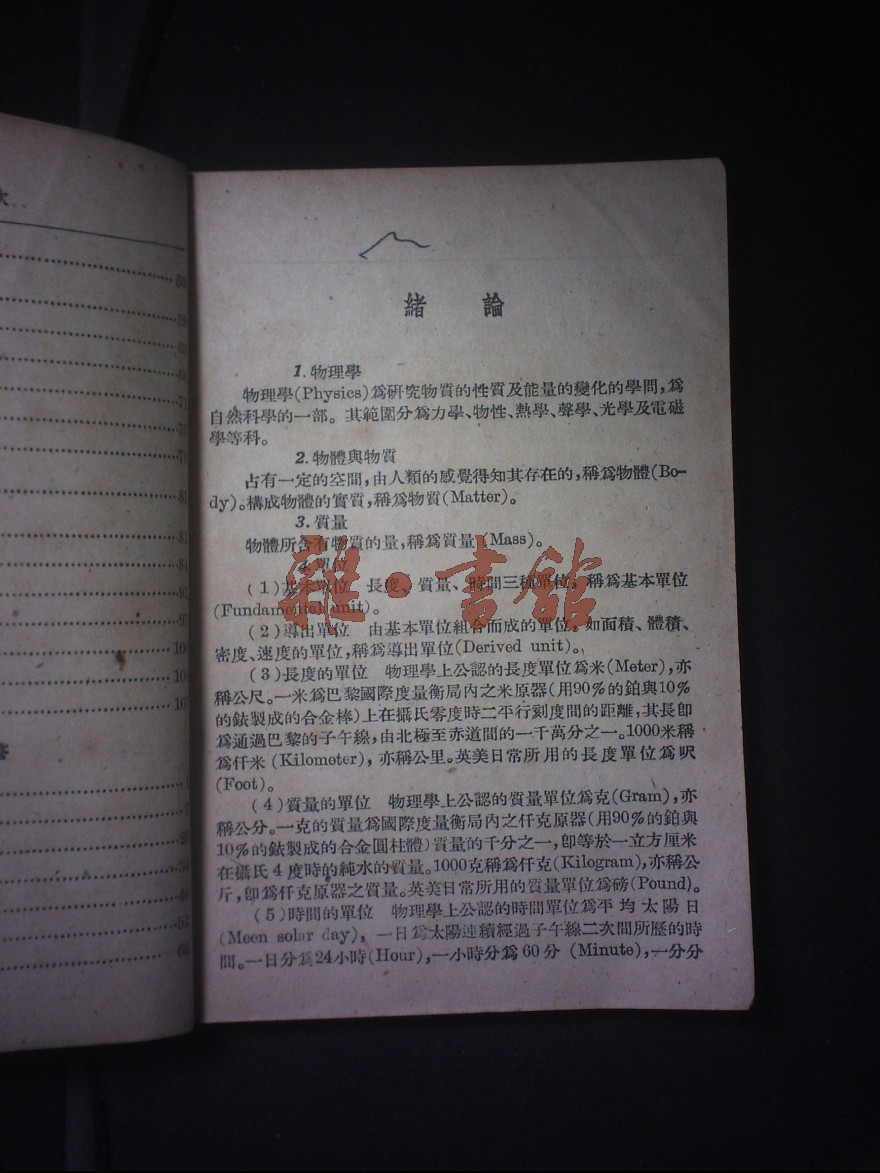 緒 論
1. 物理學
物理學(Physics)爲研究物質的性質及能量的變化的學問,爲
自然科學的一部。其範圍分爲力學、物性、熱學、聲學、光學及電磁
學等科。
2. 物體與物質
占有一定的空間,由人類的感覺得知其存在的,稱爲物體(Bo-
dy)。構成物體的實質,稱爲物質(Matter)。
3. 質量
物體所含有物質的量,稱爲質量(Mass)。
4. 單位
(1)基本單位 長度、質量、時間三種單位,稱爲基本單位
(Fundamental unit)。
(2)導出單位 由基本單位組合而成的單位,如面積、體積、
密度、速度的單位,稱爲導出單位(Derived unit)。
(3)長度的單位 物理學上公認的長度單位爲米(Meter),亦
稱公尺。一米爲巴黎國際度量衡局內之米原器(用90%的鉑與10%
的銥製成的合金棒)上在攝氏零度時二平行刻度間的距離,其長卽
爲通過巴黎的子午線,由北極至赤道間的一千萬分之一。1000米稱
爲仟米(Kilometer),亦稱公里。英美日常所用的長度單位爲呎
(Foot)。
(4)質量的單位 物理學上公認的質量單位爲克(Gram),亦
稱公分。一克的質量爲國際度量衡局內之仟克原器(用90%的鉑與
10%的銥製成的合金圓柱體)質量的千分之一,卽等於一立方厘米
在攝氏4度時的純水的質量。1000克稱爲仟克(Kilogram),亦稱公
斤,卽爲仟克原器之質量。英美日常所用的質量單位爲磅(Pound)。
(5)時間的單位 物理學上公認的時間單位爲平均太陽日
(Meen solar day),一日爲太陽連續經過子午線二次間所歷的時
間。一日分爲24小時(Hour),一小時分爲60分(Minute),一分分
雜·書館